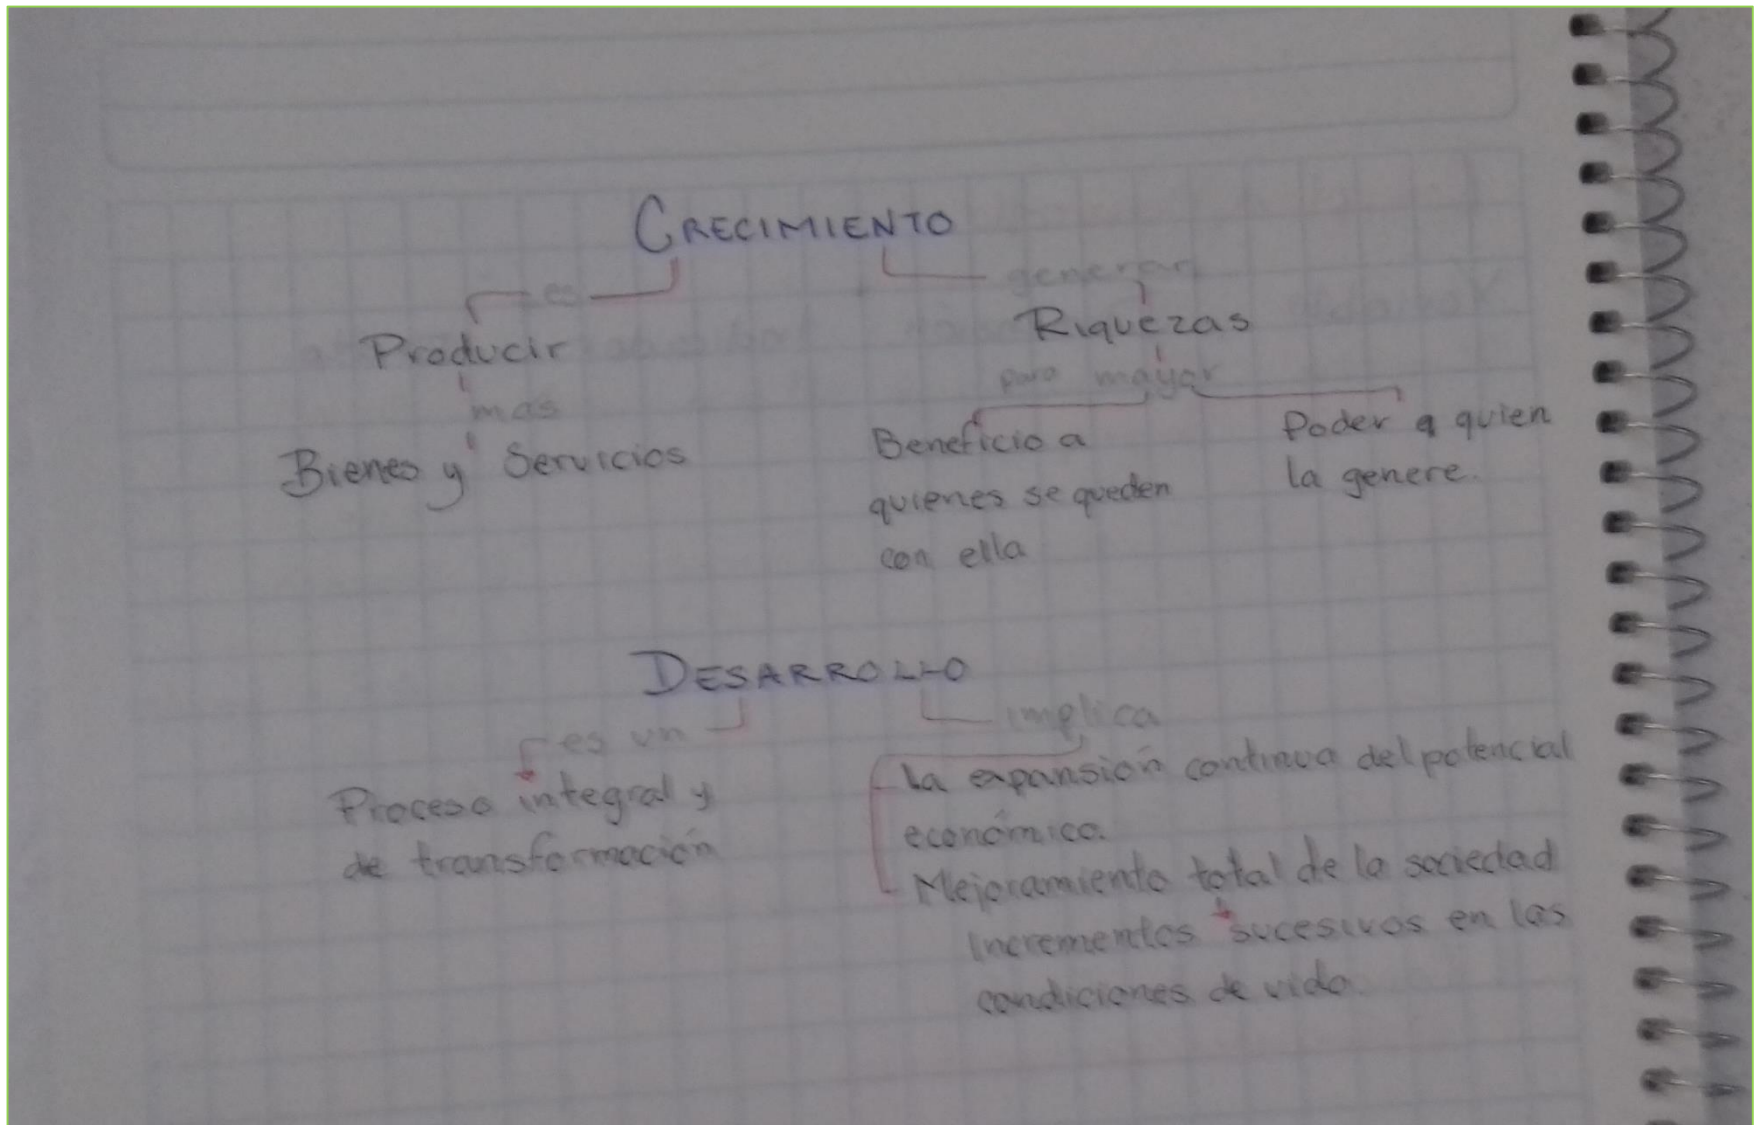 CRECIMIENTO
es
generar
Producir
Riquezas
mas
para mayor
Bienes y Servicios
Beneficio a
quienes se queden
con ella
Poder a quien
la genere.
DESARROLLO
es un
implica
Proceso integral y
de transformación
La expansión continua del potencial
económico.
Mejoramiento total de la sociedad
Incrementos sucesivos en las
condiciones de vida.